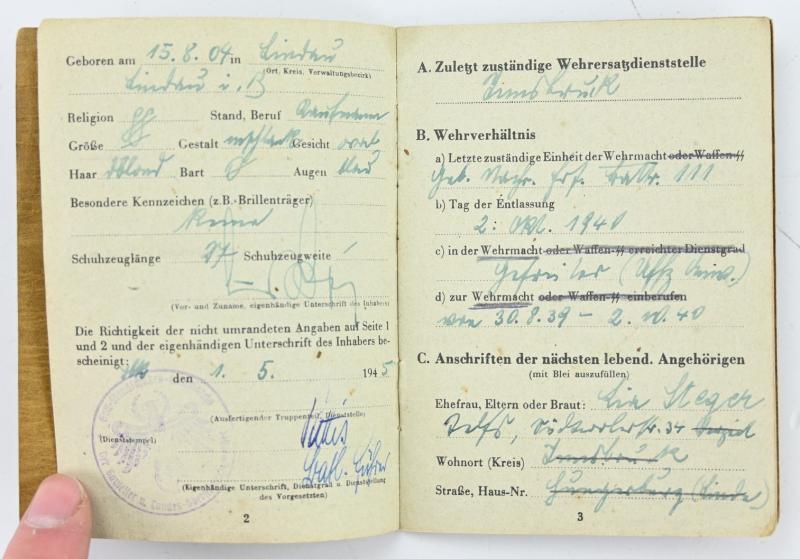 Geboren am 15.8.04 in Lindau
(Ort, Kreis, Verwaltungsbezirk)
Lindau i. B
Religion Stand, Beruf Kaufmann
Größe Gestalt Gesicht oval
Haar dblond Bart Augen blau
Besondere Kennzeichen (z.B.-Brillenträger)
Keine
Schuhzeuglänge 27 Schuhzeugweite
(Vor- und Zuname, eigenhändige Unterschrift des Inhabers)
Die Richtigkeit der nicht umrandeten Angaben auf Seite 1
und 2 und der eigenhändigen Unterschrift des Inhabers be-
scheinigt:
den 1. 5. 1945
(Ausfertigender Truppenteil, Dienststelle)
(Dienststempel)
(Eigenhändige Unterschrift, Dienstgrad u. Dienststellung
des Vorgesetzten)
2
A. Zuletzt zuständige Wehrersatzdienststelle
Innsbruck
B. Wehrverhältnis
a) Letzte zuständige Einheit der Wehrmacht oder Waffen-SS
Geb. Nachr. Ers. Battr. 111
b) Tag der Entlassung
2. Okt. 1940
c) in der Wehrmacht oder Waffen-SS erreichter Dienstgrad
Gefreiter
d) zur Wehrmacht oder Waffen-SS einberufen
von 30.8.39 - 2.10.40
C. Anschriften der nächsten lebend. Angehörigen
(mit Blei auszufüllen)
Ehefrau, Eltern oder Braut: Lia Steger
Telfs, 34
Wohnort (Kreis) Innsbruck
Straße, Haus-Nr. Hungerburg (Linde)
3